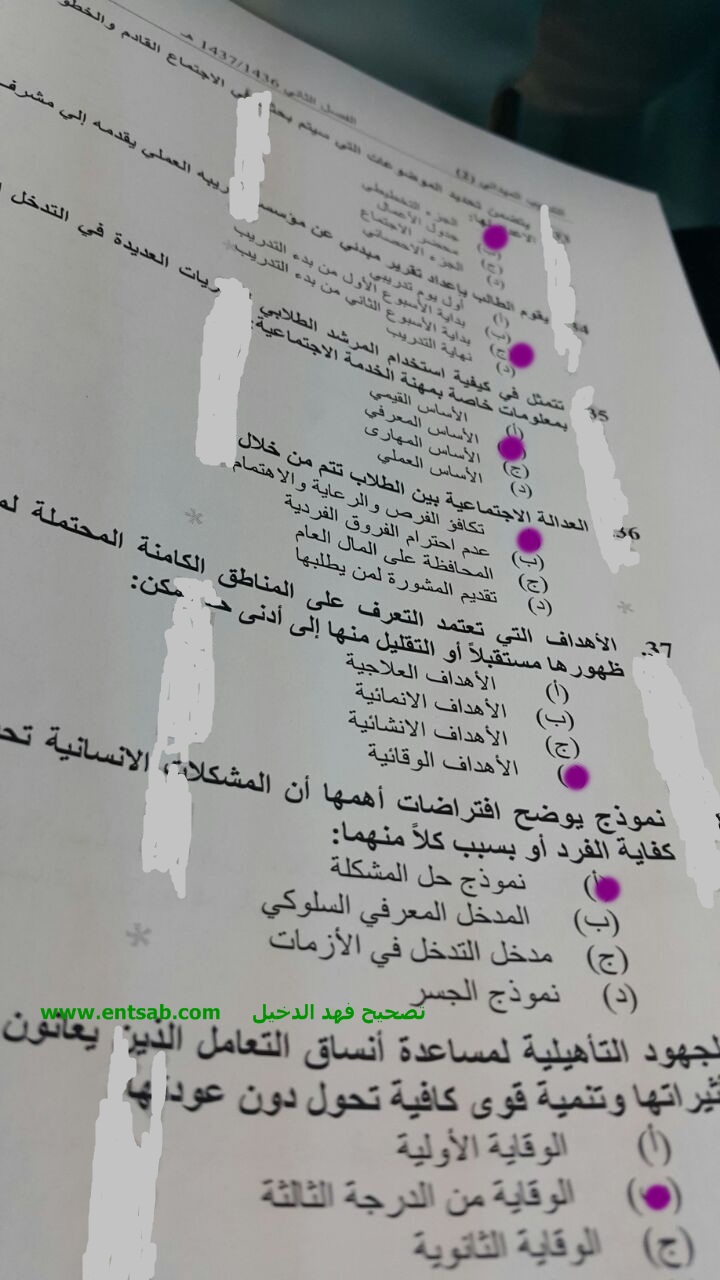 الفصل الثاني 1437/1436 هـ
الميداني (2)
يتضمن تحديد الموضوعات التي سيتم في الاجتماع القادم
الجزء التخطيطي
جدول الأعمال
محضر الاجتماع
(ج) الجزء الاحصائي
(د)
يقوم الطالب بإعداد تقرير مبدئي عن العملي يقدمه إلي مشرف
(أ) أول يوم تدريبي
(ب) بداية الأسبوع الأول من بدء التدريب
(ج) بداية الأسبوع الثاني من بدء التدريب
(د) نهاية التدريب
35 تتمثل في كيفية استخدام المرشد الطلابي العديدة في التدخل
بمعلومات خاصة بمهنة الخدمة الاجتماعية:
(أ) الأساس القيمي
الأساس المعرفي
(ج) الأساس المهارى
(د) الأساس العملي
36 العدالة الاجتماعية بين الطلاب تتم من خلال
تكافؤ الفرص والرعاية والاهتمام
(ب) عدم احترام الفروق الفردية
(ج) المحافظة على المال العام
(د) تقديم المشورة لمن يطلبها
37. الأهداف التي تعتمد التعرف على المناطق الكامنة المحتملة
ظهورها مستقبلاً أو التقليل منها إلى أدنى
(أ) الأهداف العلاجية
(ب) الأهداف الانمائية
(ج) الأهداف الانشائية
الأهداف الوقائية
نموذج يوضح افتراضات أهمها أن المشكلات الانسانية
كفاية الفرد أو بسبب كلاً منهما:
(أ) نموذج حل المشكلة
(ب) المدخل المعرفي السلوكي
(ج) مدخل التدخل في الأزمات
(د) نموذج الجسر
تصحيح فهد الدخيل www.entsab.com
التأهيلية لمساعدة أنساق التعامل الذين يعانون
وتنمية قوى كافية تحول دون عودتها
(أ) الوقاية الأولية
الوقاية من الدرجة الثالثة
(ج) الوقاية الثانوية